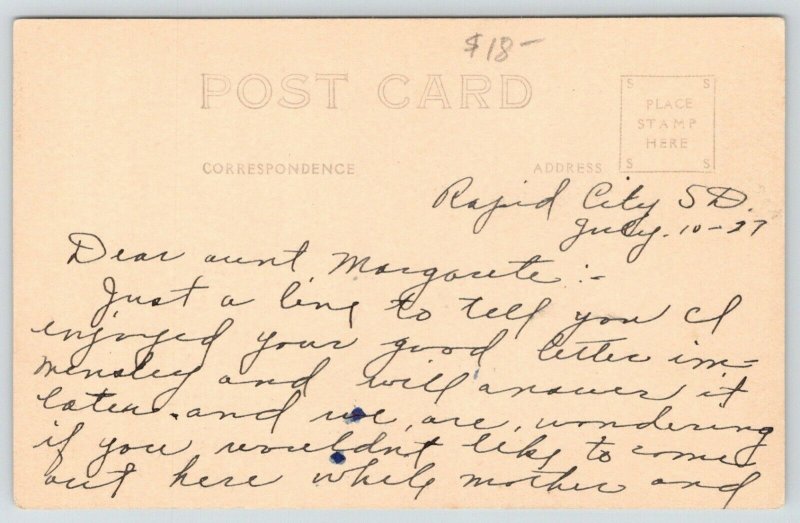 $18-
POST CARD
S S
PLACE
STAMP
HERE
S S
CORRESPONDENCE ADDRESS
Rapid City SD.
July. 10-27
Dear aunt Margarete:-
Just a line to tell you I
enjoyed your good letter im-
mensley and will answer it
later. and we, are, wondering
if you wouldnt like to come
out here while mother and